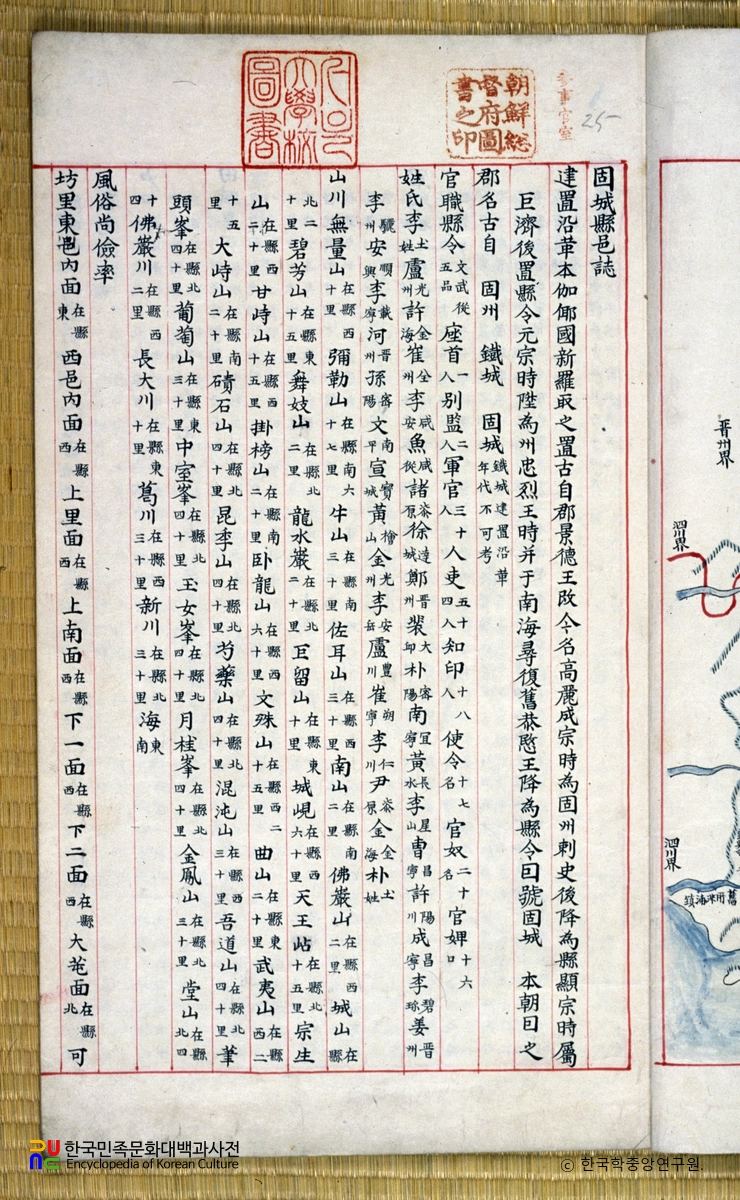 固城縣邑誌
建置沿革本伽倻國新羅取之置古自郡景德王改今名高麗成宗時為固州刺史後降為縣顯宗時屬
巨濟後置縣令元宗時陞為州忠烈王時并于南海尋復舊恭愍王降為縣令曰號固城 本朝曰之
郡名古自 固州 鐵城 固城鐵城建置沿革年代不可考
官職縣令文武從五品座首一人別監二人軍官三十人人吏五十四人知印十八人使令十七名官奴二十名官婢十六口
姓氏李土姓盧光州許金海崔全州李咸安魚咸從諸柒原徐達城鄭晋州裴大邱朴密陽南宜寧黃長水李星山曺昌寧許陽川成昌寧李碧珍姜晋州
李驪州安順興李載寧河晋州孫密陽文南平宣寶城黃檜山金光州李安岳盧豐川崔朔寧李仁川尹柒原金金海朴土姓
山川無量山在縣西十里彌勒山在縣南六十七里牛山在縣南三十里佐耳山在縣西三十里南山在縣南二里佛巖山在縣西二里城山在縣
北二十里碧芳山在縣東十五里舞妓山在縣北二里龍水巖在縣北二十里巨留山在縣東十里城峴在縣西六十里天王岾在縣北十五里宗生
山在縣西二十里甘峙山在縣西十五里掛榜山在縣南二十里卧龍山在縣西六十里文殊山在縣西二十五里曲山在縣東二十里武夷山在縣西二
十五里大峙山在縣南二十里磧石山在縣北四十里昆季山在縣北四十里芍藥山在縣北四十里混沌山在縣西三十里吾道山在縣北四十里筆
頭峯在縣北四十里葡萄山在縣東三十里中室峯在縣北四十里玉女峯在縣北四十里月桂峯在縣北四十里金鳳山在縣北三十里堂山在縣北四
十四佛巖川在縣西二里長大川在縣東十里葛川在縣西三十里新川在縣北三十里海東南
風俗尚儉率
坊里東邑內面在縣東西邑內面在縣西上里面在縣西上南面在縣西下一面在縣西下二面在縣西大芚面在縣北可
朝鮮総督府圖書之印
參事官室
25
圖書
晋州界
泗川界
泗川界
한국민족문화대백과사전
Encyclopedia of Korean Culture
ⓒ 한국학중앙연구원.